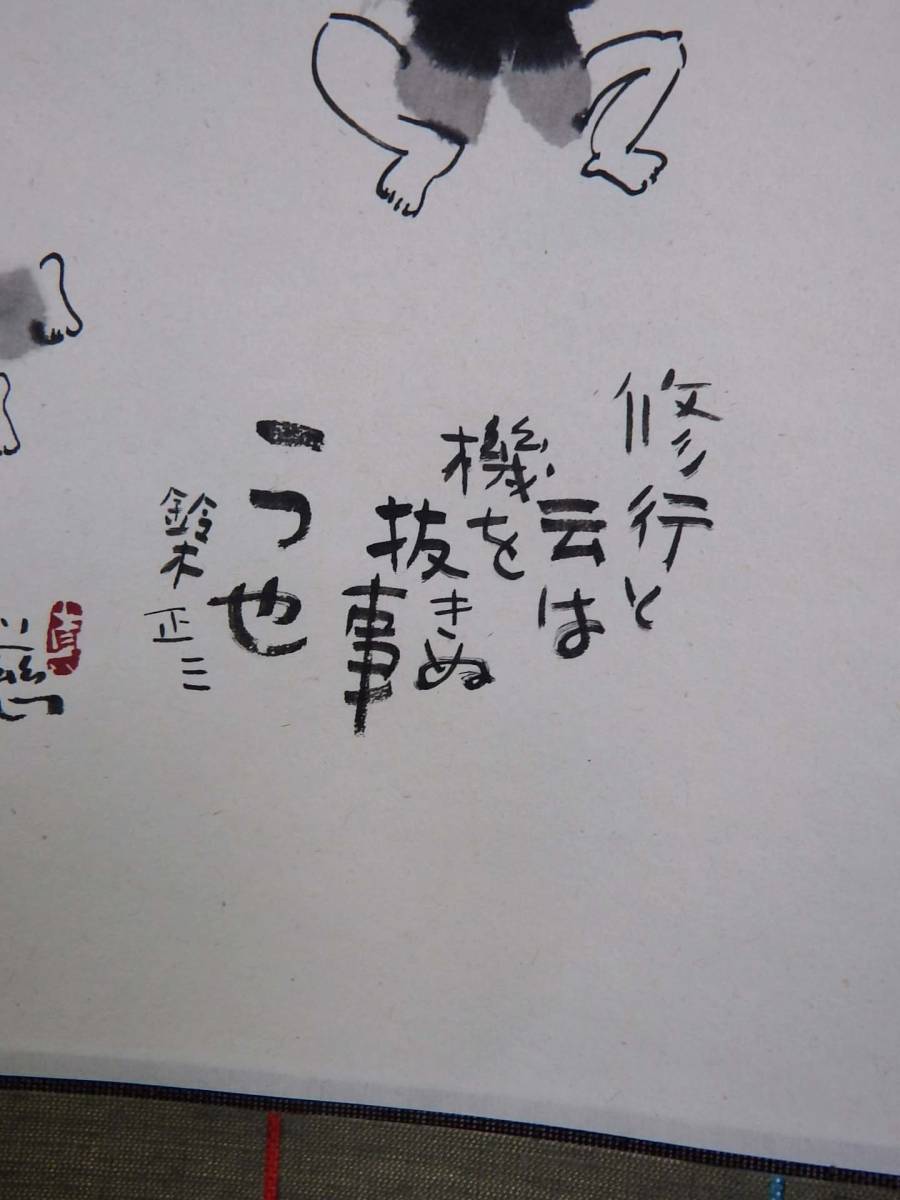 修行と
云は
機を
抜きぬ
事
一つ也
鈴木正三